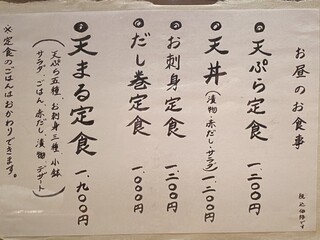 お昼のお食事
税込価格です
天ぷら定食 一、二〇〇円
天丼(漬物・赤だし・サラダ) 一、二〇〇円
お刺身定食 一、三〇〇円
だし巻定食 一、〇〇〇円
天まる定食 一、九〇〇円
(天ぷら五種、お刺身三種、小鉢
サラダ、ごはん、赤だし、漬物、デザート)
※定食のごはんはおかわりできます。